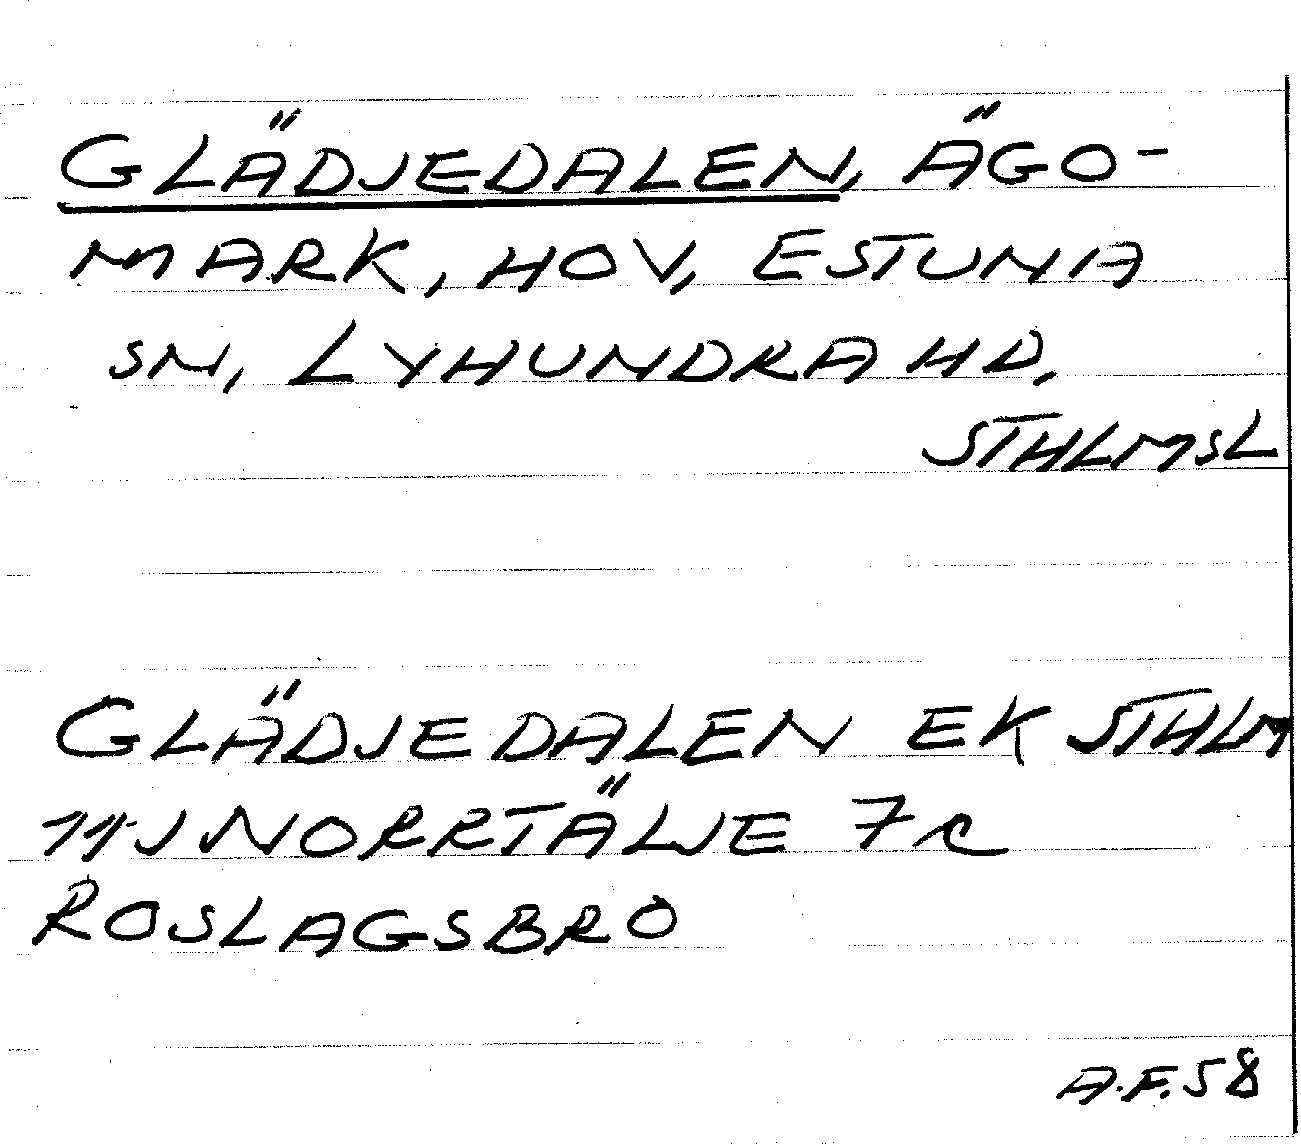 GLÄDJEDALEN, ÄGO-
MARK, HOV, ESTUNA
SN, LYHUNDRA HD.
STHLMSL
GLÄDJEDALEN EK STHLM
11J NORRTÄLJE 7c
ROSLAGSBRO
A.F.58